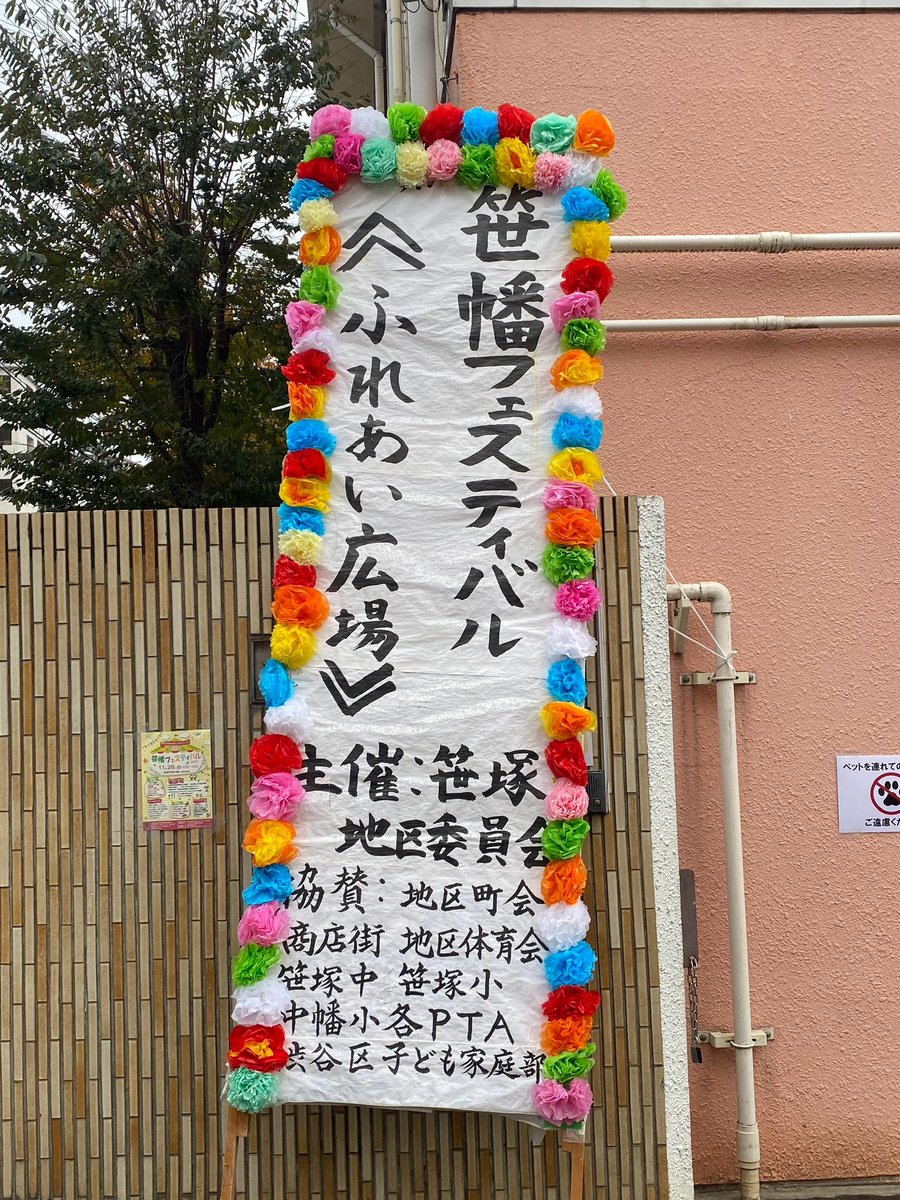 笹幡フェスティバル
《ふれあい広場》
主催:笹塚
地区委員会
協賛:地区町会
商店街 地区体育会
笹塚中 笹塚小
中幡小各PTA
渋谷区子ども家庭部
笹幡フェスティバル
11.26
ペットを連れての
ご遠慮くだ